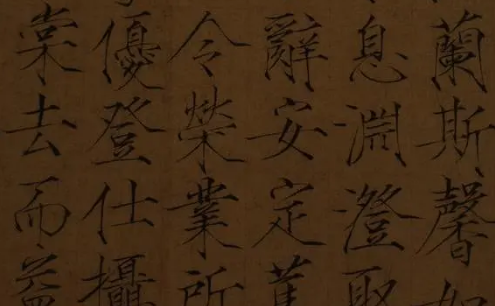 蘭斯馨如
息淵澄取
辭安定
令榮業所
優登仕攝
棠去而益